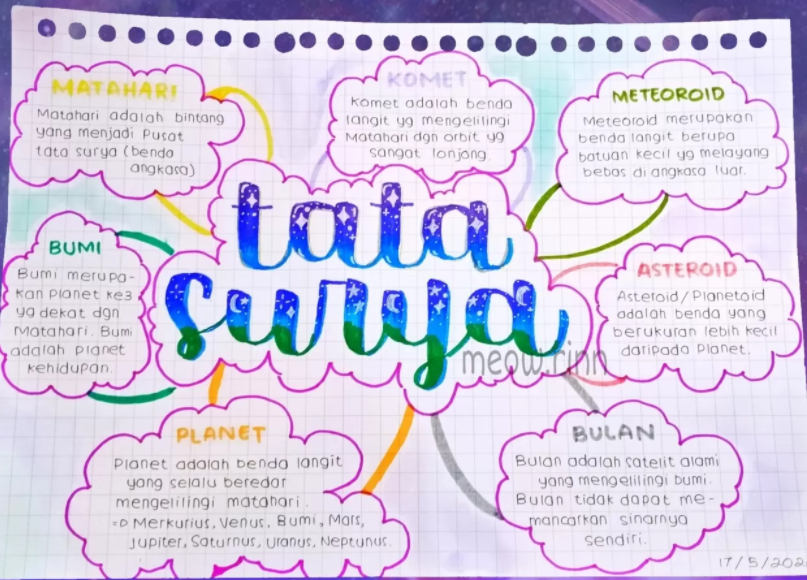 MATAHARI
Matahari adalah bintang
yang menjadi Pusat
tata surya (benda
angkasa)
KOMET
Komet adalah benda
langit yg mengelilingi
Matahari dgn orbit yg
sangat lonjong.
METEOROID
Meteoroid merupakan
benda langit berupa
batuan kecil yg melayang
bebas di angkasa luar.
tata
surya
meow.rinn
BUMI
Bumi merupa-
kan Planet ke3
yg dekat dgn
Matahari. Bumi
adalah planet
kehidupan.
ASTEROID
Asteroid/Planetoid
adalah benda yang
berukuran lebih kecil
daripada Planet.
PLANET
Planet adalah benda langit
yang selalu beredar
mengelilingi matahari.
=D Merkurius, Venus, Bumi, Mars,
Jupiter, Saturnus, Uranus, Neptunus.
BULAN
Bulan adalah satelit alami
yang mengelilingi bumi.
Bulan tidak dapat me-
mancarkan sinarnya
sendiri.
17/5/202